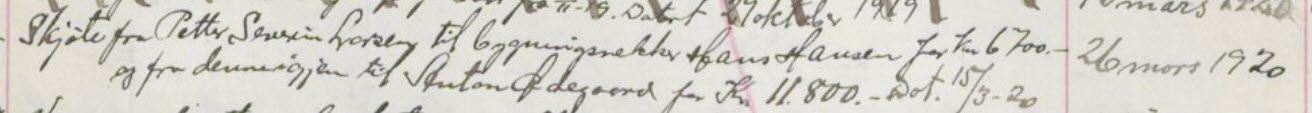 Datert 29 oktober 1919
Skjøte fra Petter Severin Larsen til bygningssnekker Hans Hansen for kr 6700.- 26 mars 1920
og fra denne igjen til Anton Ødegaard for Kr. 11.800.- Dat. 15/3-20